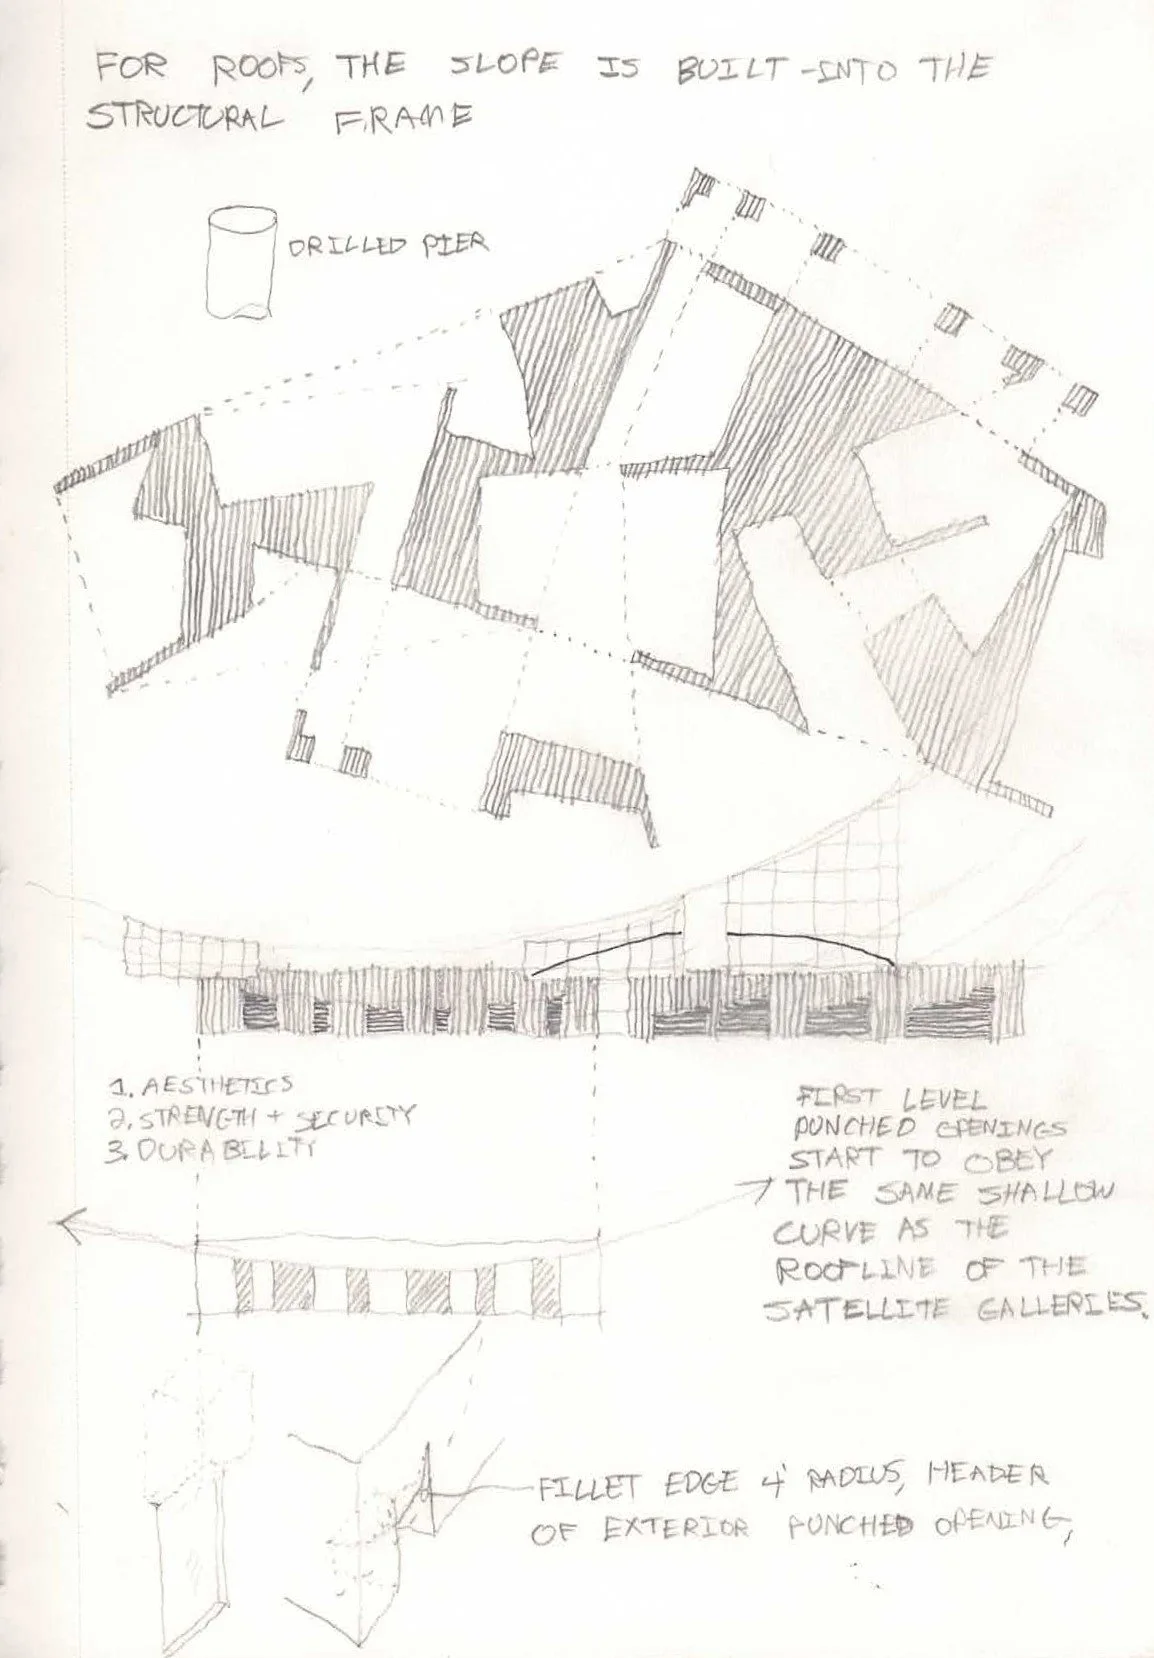 FOR ROOFS, THE SLOPE IS BUILT-INTO THE
STRUCTURAL FRAME
DRILLED PIER
1. AESTHETICS
2. STRENGTH + SECURITY
3. DURABILITY
FIRST LEVEL
PUNCHED OPENINGS
START TO OBEY
THE SAME SHALLOW
CURVE AS THE
ROOFLINE OF THE
SATELLITE GALLERIES.
FILLET EDGE 4' RADIUS, HEADER
OF EXTERIOR PUNCHED OPENING,